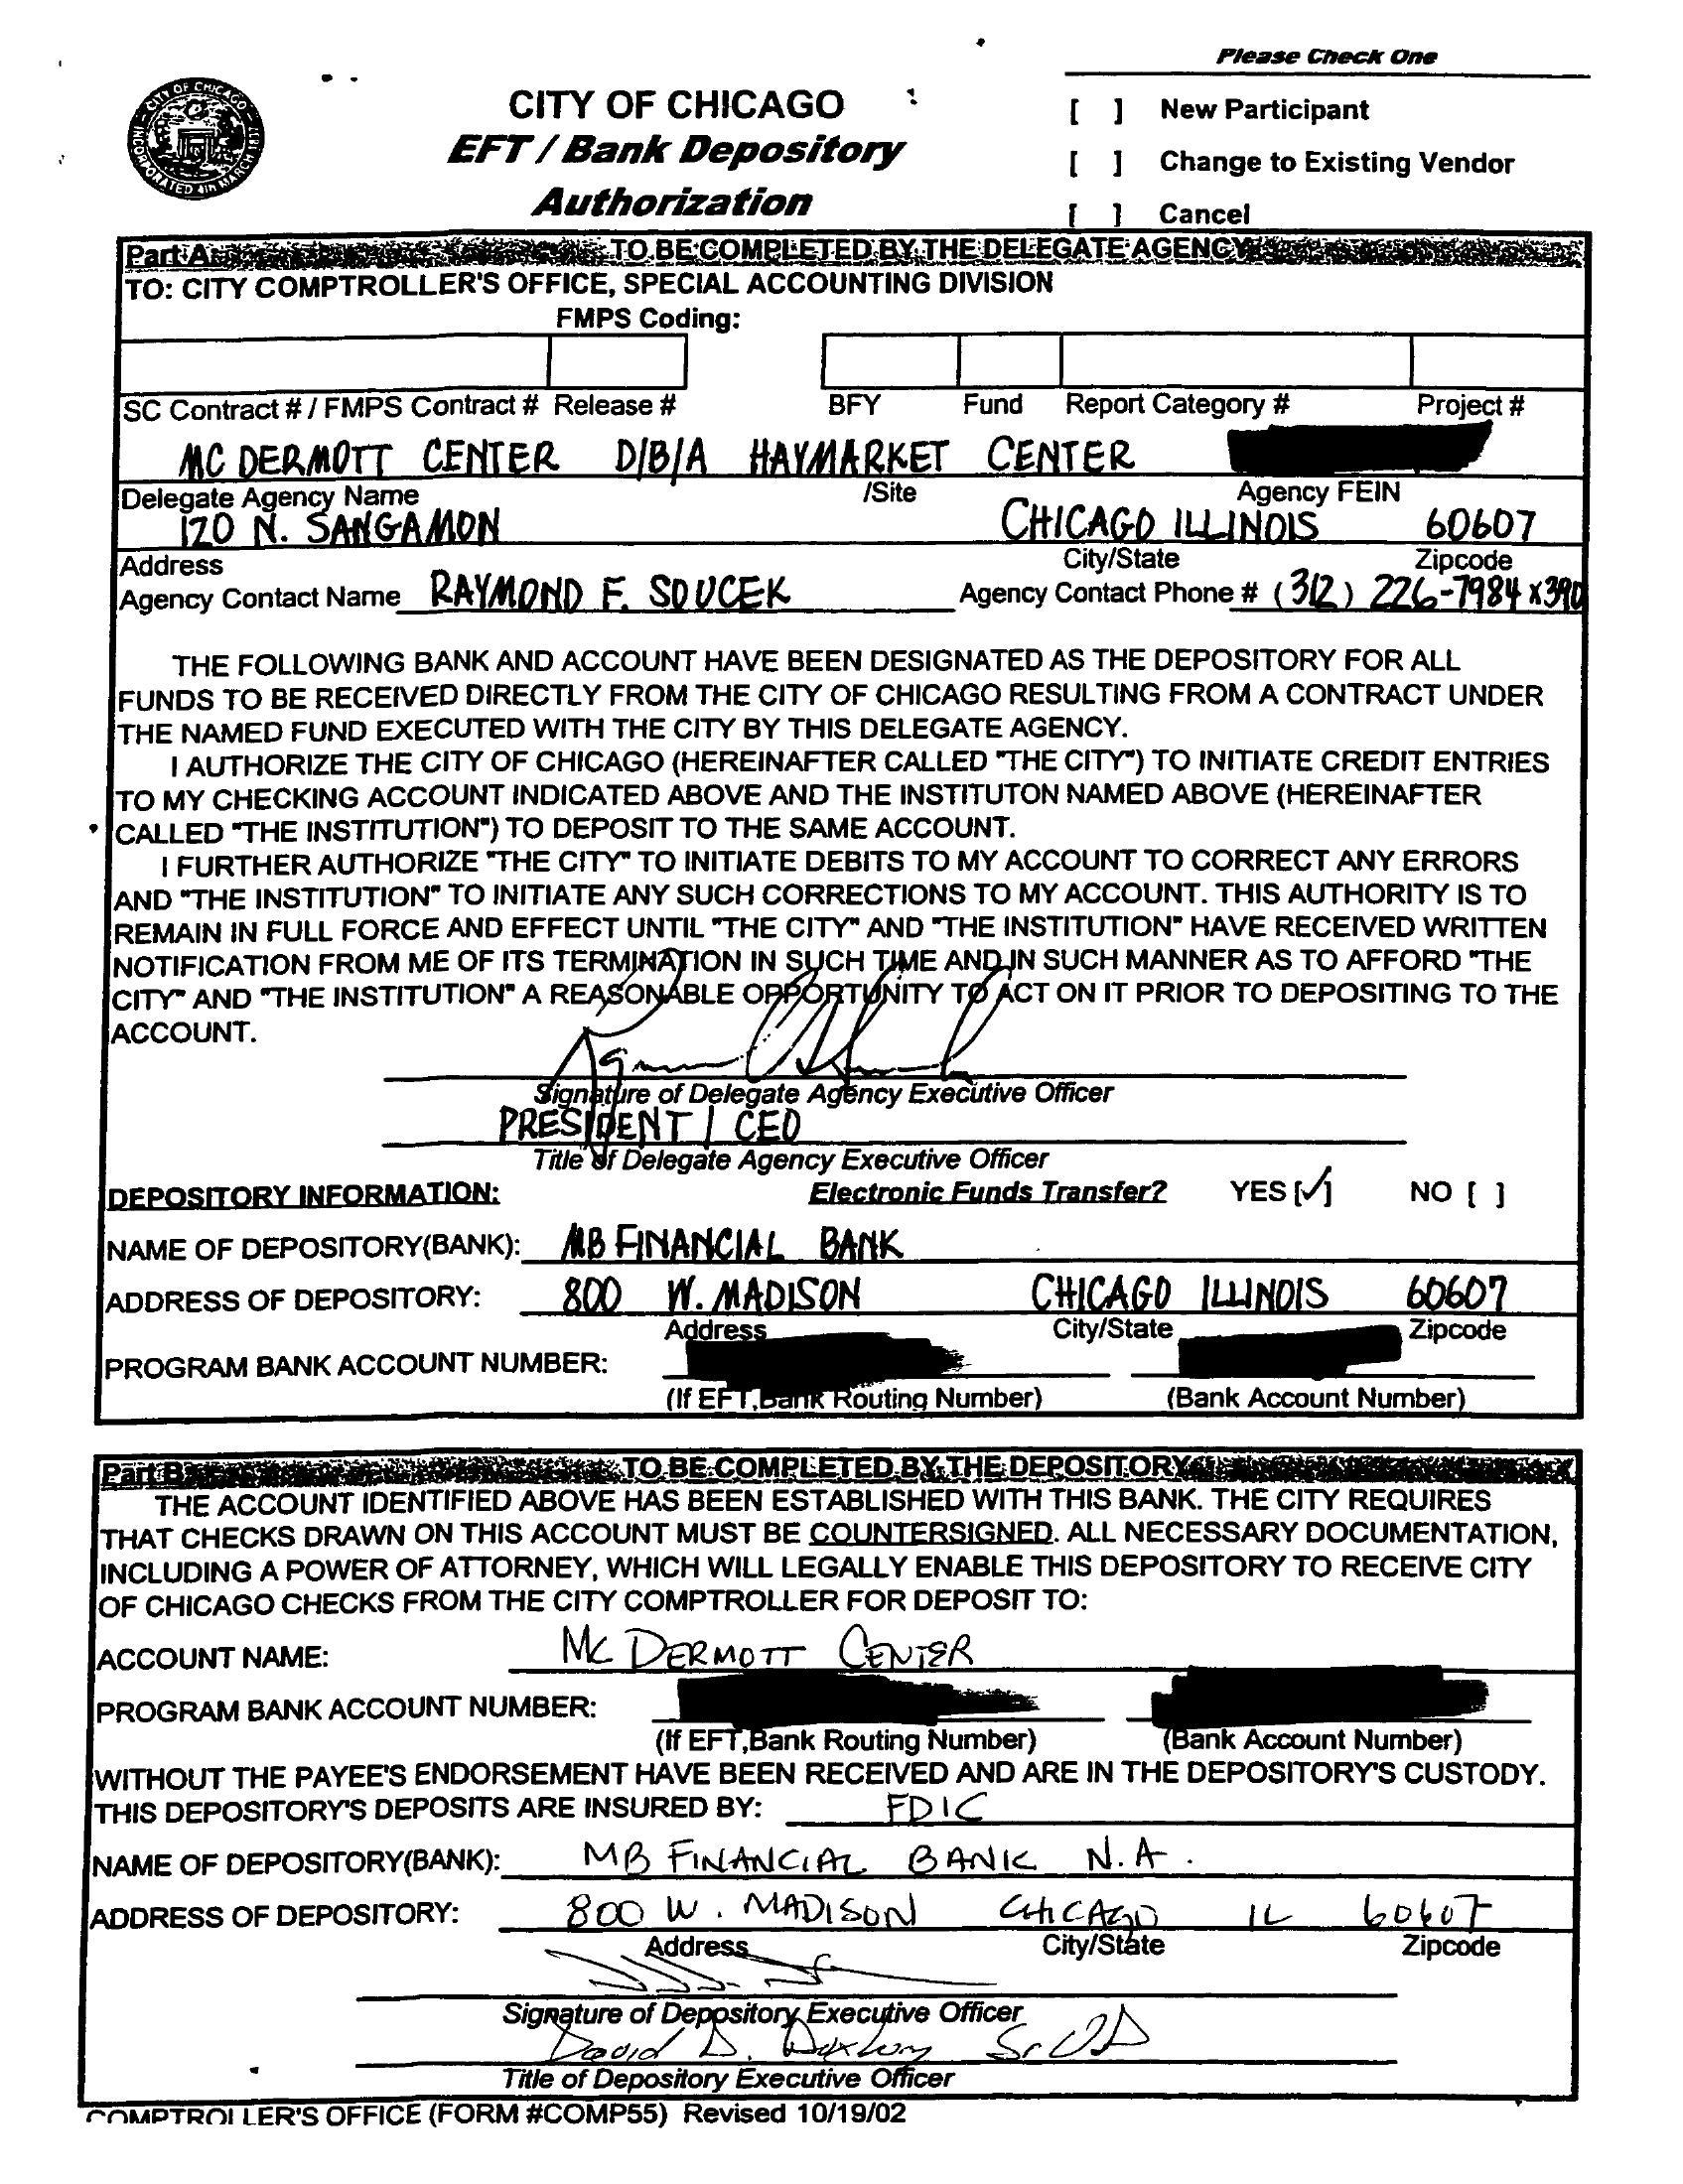 Please Check One
CITY OF CHICAGO
EFT / Bank Depository
Authorization
[ ] New Participant
[ ] Change to Existing Vendor
[ ] Cancel
Part A TO BE COMPLETED BY THE DELEGATE AGENCY
TO: CITY COMPTROLLER'S OFFICE, SPECIAL ACCOUNTING DIVISION
FMPS Coding:
SC Contract # / FMPS Contract # Release # BFY Fund Report Category # Project #
MC DERMOTT CENTER D/B/A HAYMARKET CENTER
Delegate Agency Name /Site Agency FEIN
120 N. SANGAMON CHICAGO ILLINOIS 60607
Address City/State Zipcode
Agency Contact Name RAYMOND F. SOUCEK Agency Contact Phone # (312) 226-7984 x390
THE FOLLOWING BANK AND ACCOUNT HAVE BEEN DESIGNATED AS THE DEPOSITORY FOR ALL
FUNDS TO BE RECEIVED DIRECTLY FROM THE CITY OF CHICAGO RESULTING FROM A CONTRACT UNDER
THE NAMED FUND EXECUTED WITH THE CITY BY THIS DELEGATE AGENCY.
I AUTHORIZE THE CITY OF CHICAGO (HEREINAFTER CALLED "THE CITY") TO INITIATE CREDIT ENTRIES
TO MY CHECKING ACCOUNT INDICATED ABOVE AND THE INSTITUTON NAMED ABOVE (HEREINAFTER
CALLED "THE INSTITUTION") TO DEPOSIT TO THE SAME ACCOUNT.
I FURTHER AUTHORIZE "THE CITY" TO INITIATE DEBITS TO MY ACCOUNT TO CORRECT ANY ERRORS
AND "THE INSTITUTION" TO INITIATE ANY SUCH CORRECTIONS TO MY ACCOUNT. THIS AUTHORITY IS TO
REMAIN IN FULL FORCE AND EFFECT UNTIL "THE CITY" AND "THE INSTITUTION" HAVE RECEIVED WRITTEN
NOTIFICATION FROM ME OF ITS TERMINATION IN SUCH TIME AND IN SUCH MANNER AS TO AFFORD "THE
CITY" AND "THE INSTITUTION" A REASONABLE OPPORTUNITY TO ACT ON IT PRIOR TO DEPOSITING TO THE
ACCOUNT.
Signature of Delegate Agency Executive Officer
PRESIDENT / CEO
Title of Delegate Agency Executive Officer
DEPOSITORY INFORMATION: Electronic Funds Transfer? YES [✓] NO [ ]
NAME OF DEPOSITORY(BANK): MB FINANCIAL BANK
ADDRESS OF DEPOSITORY: 800 W. MADISON CHICAGO ILLINOIS 60607
Address City/State Zipcode
PROGRAM BANK ACCOUNT NUMBER:
(If EFT,Bank Routing Number) (Bank Account Number)
Part B TO BE COMPLETED BY THE DEPOSITORY
THE ACCOUNT IDENTIFIED ABOVE HAS BEEN ESTABLISHED WITH THIS BANK. THE CITY REQUIRES
THAT CHECKS DRAWN ON THIS ACCOUNT MUST BE COUNTERSIGNED. ALL NECESSARY DOCUMENTATION,
INCLUDING A POWER OF ATTORNEY, WHICH WILL LEGALLY ENABLE THIS DEPOSITORY TO RECEIVE CITY
OF CHICAGO CHECKS FROM THE CITY COMPTROLLER FOR DEPOSIT TO:
ACCOUNT NAME: MC DERMOTT CENTER
PROGRAM BANK ACCOUNT NUMBER:
(If EFT,Bank Routing Number) (Bank Account Number)
WITHOUT THE PAYEE'S ENDORSEMENT HAVE BEEN RECEIVED AND ARE IN THE DEPOSITORY'S CUSTODY.
THIS DEPOSITORY'S DEPOSITS ARE INSURED BY: FDIC
NAME OF DEPOSITORY(BANK): MB FINANCIAL BANK N.A.
ADDRESS OF DEPOSITORY: 800 W. MADISON CHICAGO IL 60607
Address City/State Zipcode
Signature of Depository Executive Officer
David D.
Title of Depository Executive Officer
COMPTROLLER'S OFFICE (FORM #COMP55) Revised 10/19/02